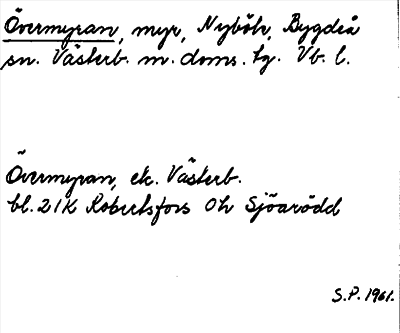 Övermyran, myr, Nyböle, Bygdeå
sn. Västerb. m. doms. tg. Vb. l.
Övermyran, ek. Västerb.
bl. 21K Robertsfors Oh Sjöarödd
S.P. 1961.